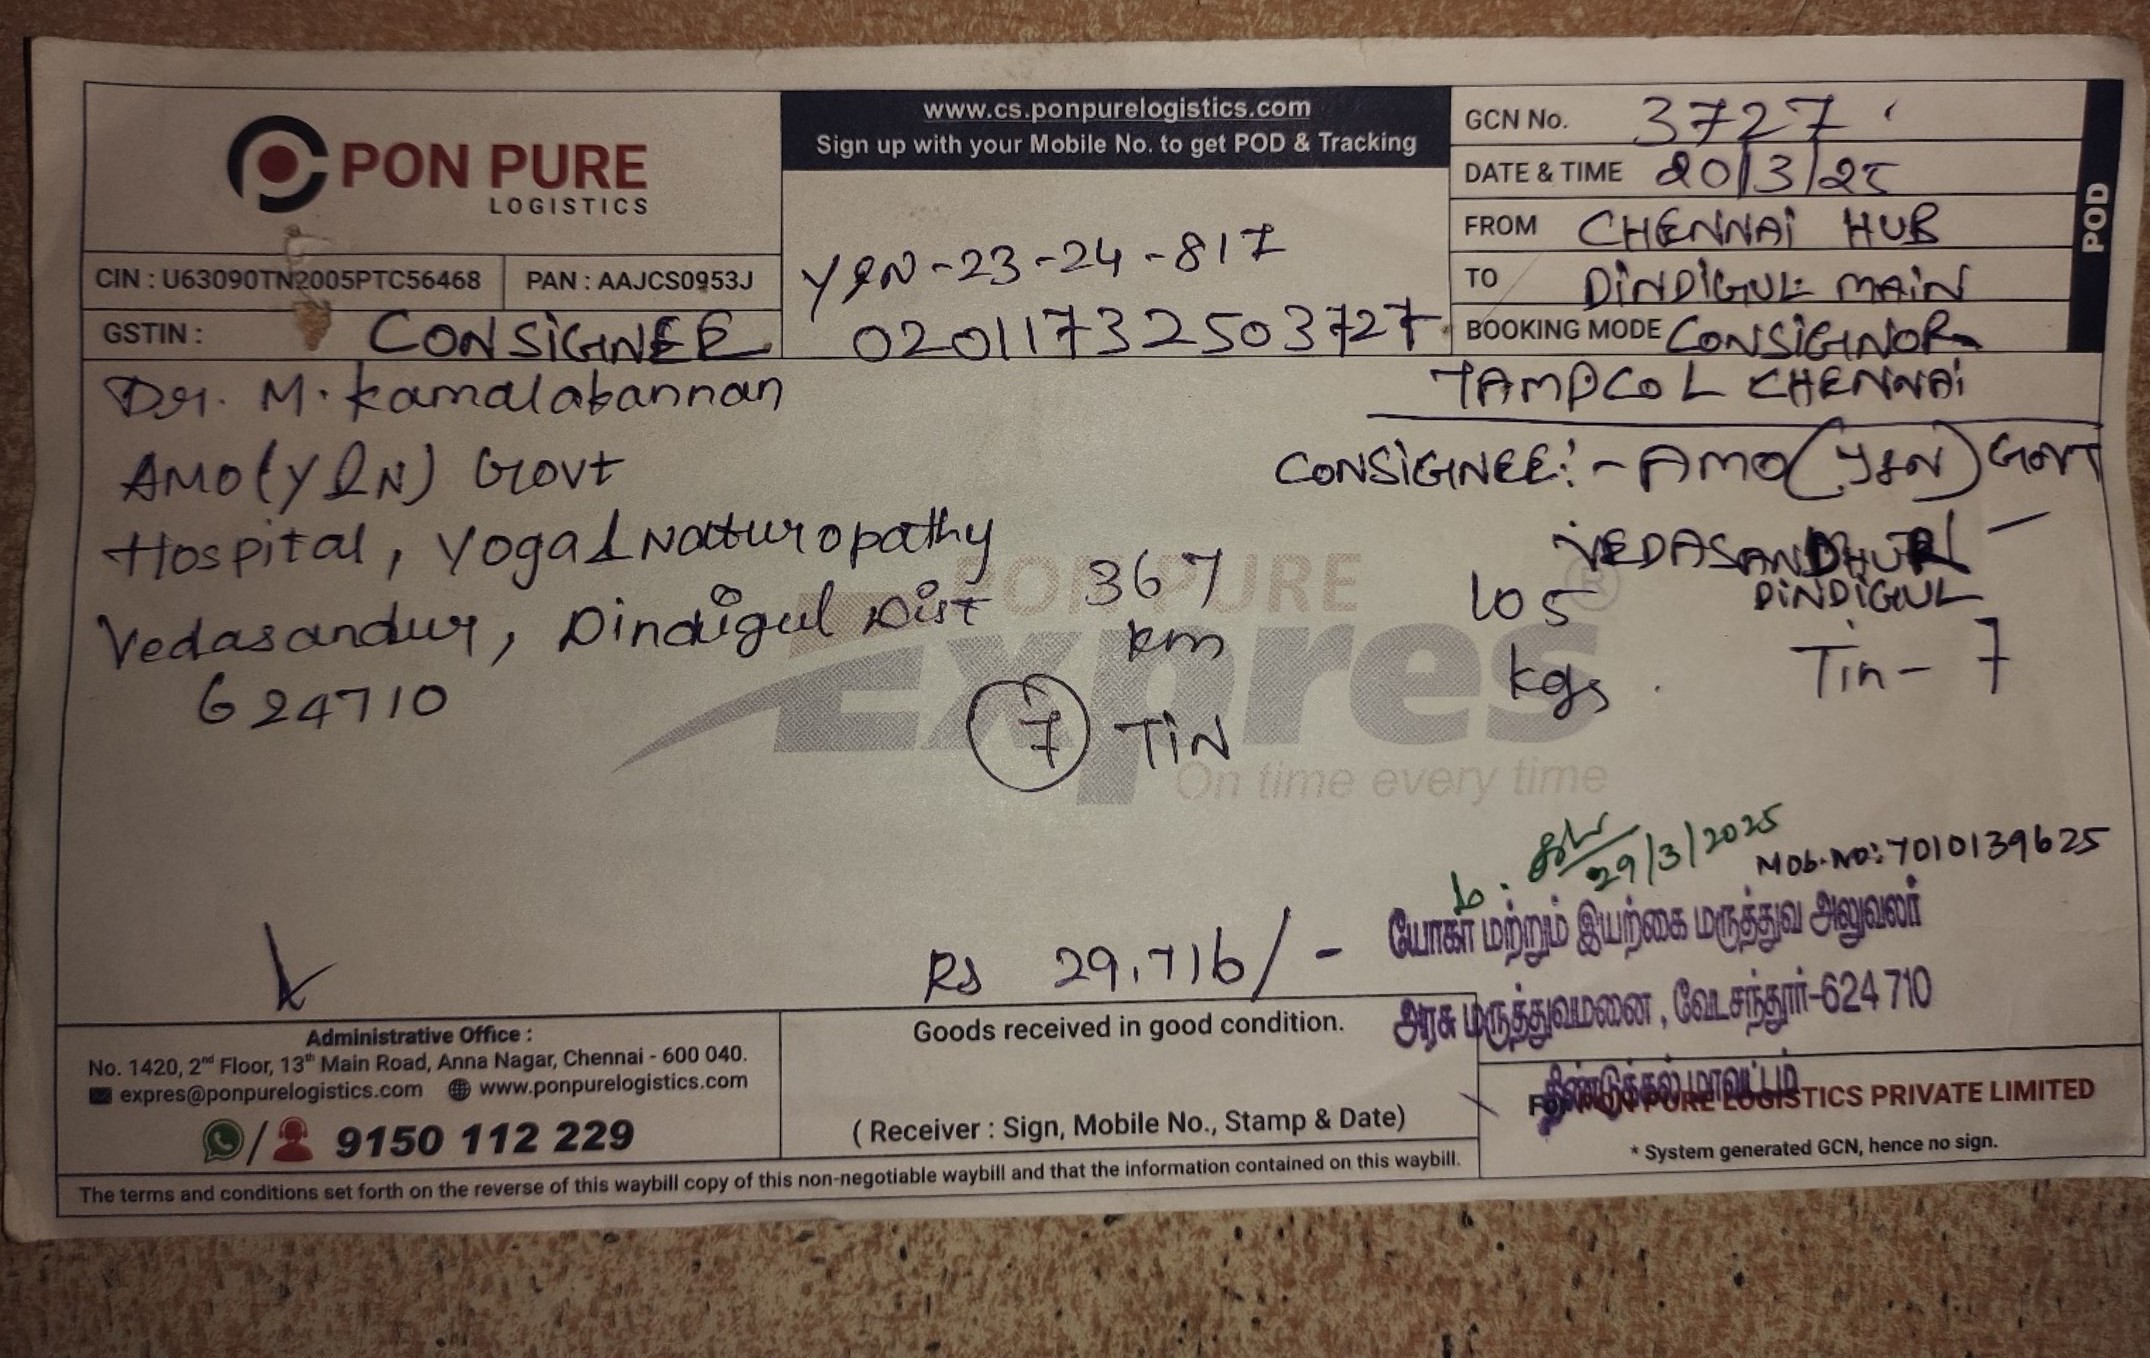 PON PURE
LOGISTICS
www.cs.ponpurelogistics.com
Sign up with your Mobile No. to get POD & Tracking
GCN No. 3727
DATE & TIME 20/3/25
FROM CHENNAI HUB
TO DINDIGUL MAIN
BOOKING MODE CONSIGNOR
POD
CIN : U63090TN2005PTC56468
PAN : AAJCS0953J
GSTIN :
CONSIGNEE
Y&N-23-24-817
0201173 2503727
TAMPCOL CHENNAI
Dr. M. Kamalabannan
AMO(Y&N) Govt
Hospital, Yoga & Naturopathy
Vedasandur, Dindigul Dist
624710
CONSIGNEE:- AMO(Y&N) GOVT
VEDASANDHUR
DINDIGUL
367
km
105
kgs.
Tin- 7
7 TIN
PON PURE
Expres
On time every time
29/3/2025
Mob.No: 7010139625
Rs 29,716/-
யோகா மற்றும் இயற்கை மருத்துவ அலுவலர்
அரசு மருத்துவமனை, வேடசந்தூர்-624 710
திண்டுக்கல் மாவட்டம்
Administrative Office :
No. 1420, 2nd Floor, 13th Main Road, Anna Nagar, Chennai - 600 040.
expres@ponpurelogistics.com www.ponpurelogistics.com
/ 9150 112 229
Goods received in good condition.
( Receiver : Sign, Mobile No., Stamp & Date)
For PON PURE LOGISTICS PRIVATE LIMITED
* System generated GCN, hence no sign.
The terms and conditions set forth on the reverse of this waybill copy of this non-negotiable waybill and that the information contained on this waybill.